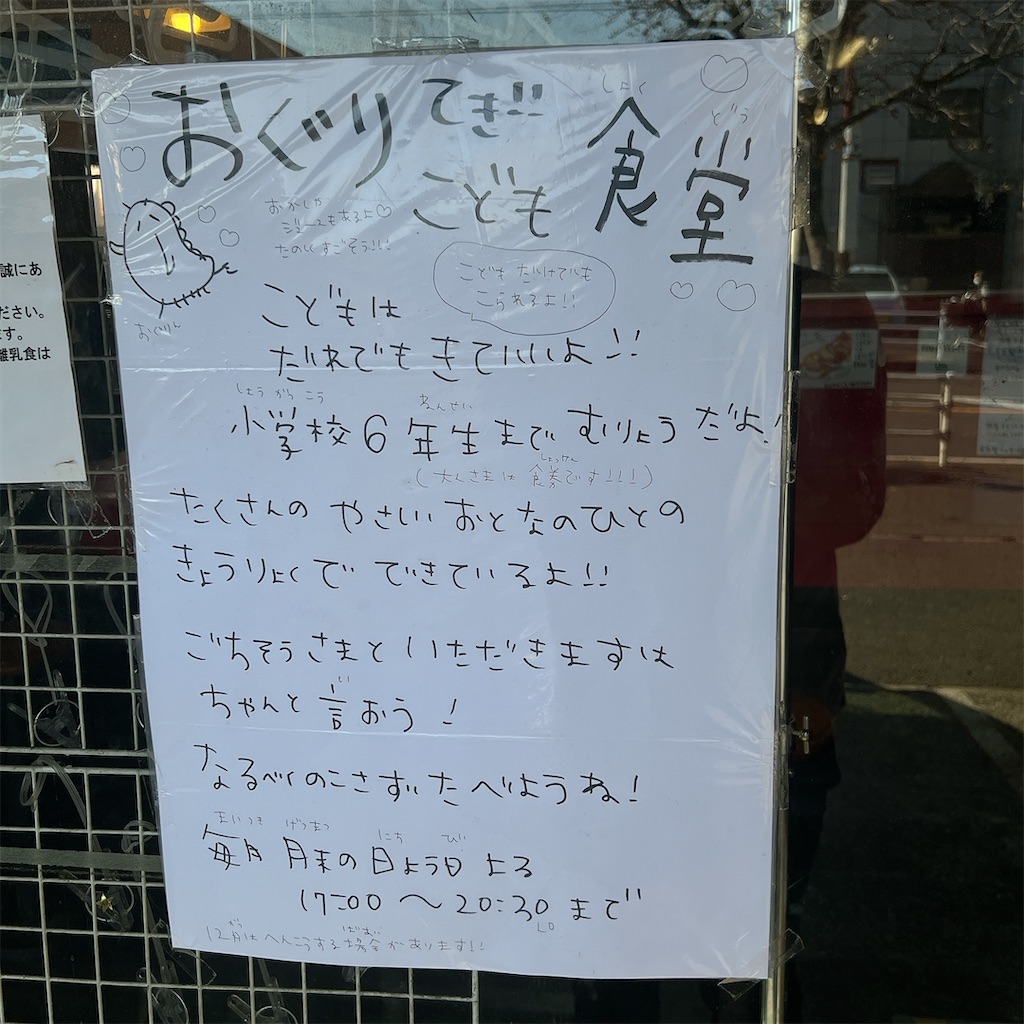 おぐりてぎい
こども
食堂
しょく
どう
おかしや
ジュースもあるよ♡
たのしくすごそう!!!
こども だけでも
こられるよ!!
おぐりん
こどもは
だれでもきていいよ!!
しょうがっこう
ねんせい
小学校6年生まで むりょうだよ!
しょっけん
(大人さまは食券です!!!)
たくさんの やさしい おとなのひとの
きょうりょくで できているよ!!
ごちそうさまと いただきますは
い
ちゃんと 言おう!
なるべくのこさずたべようね!
まいつき げつまつ にち び
毎月 月末の日よう日 よる
17:00 〜 20:30 まで
LO
がつ
ばあい
12月はへんこうする場合があります!!
誠にあ
ださい。
ます。
離乳食は